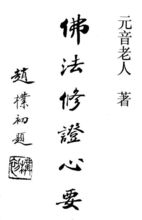 元音老人 著
佛法修證心要
趙樸初題